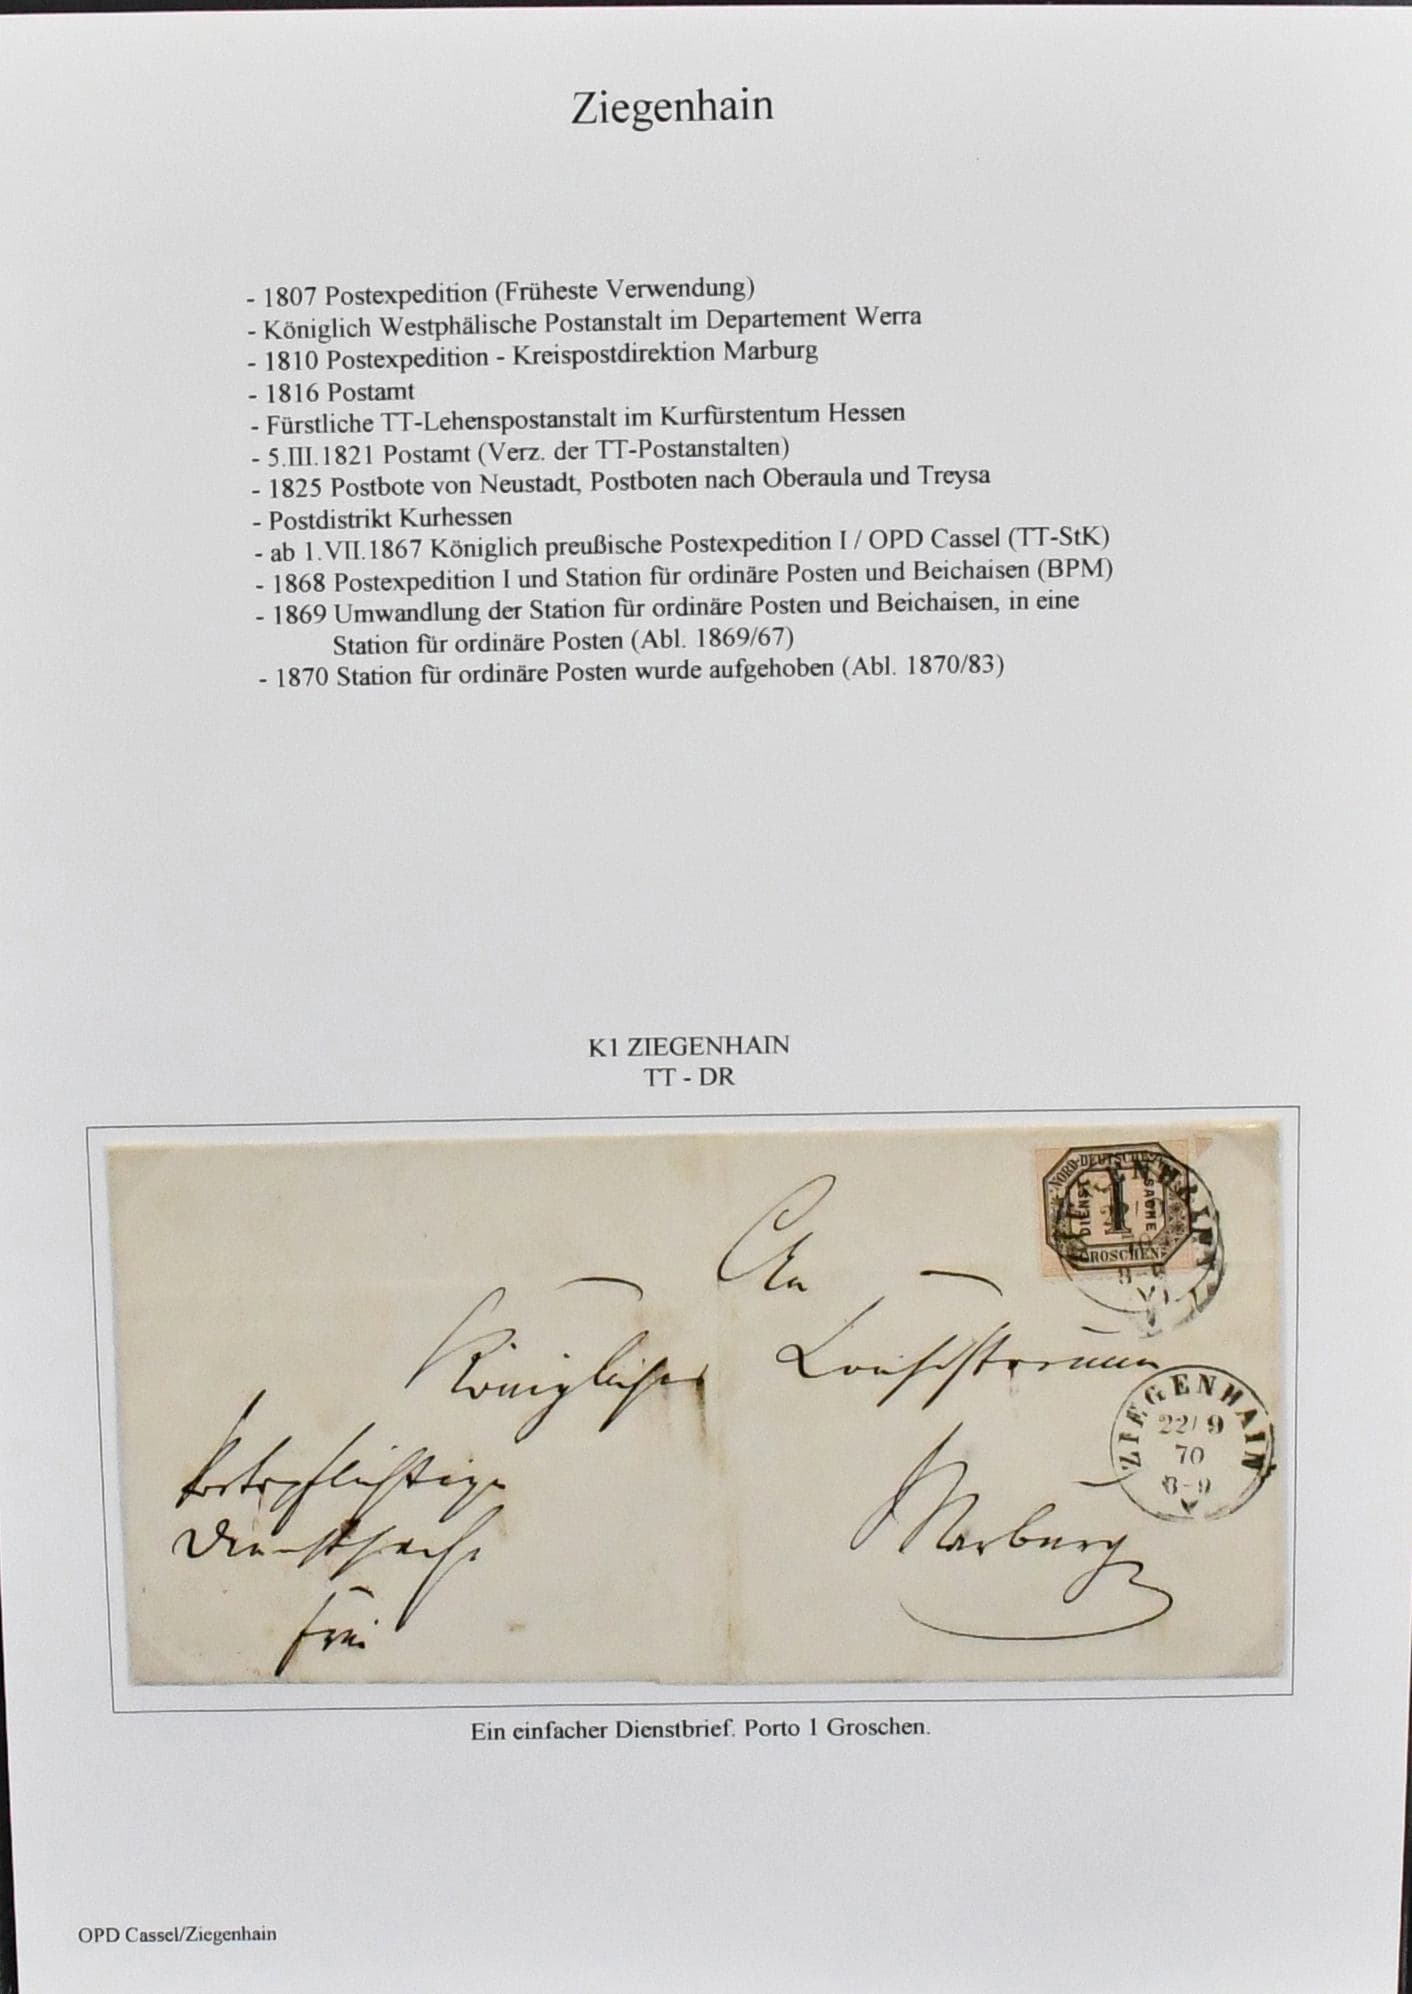 Ziegenhain
- 1807 Postexpedition (Früheste Verwendung)
- Königlich Westphälische Postanstalt im Departement Werra
- 1810 Postexpedition - Kreispostdirektion Marburg
- 1816 Postamt
- Fürstliche TT-Lehenspostanstalt im Kurfürstentum Hessen
- 5.III.1821 Postamt (Verz. der TT-Postanstalten)
- 1825 Postbote von Neustadt, Postboten nach Oberaula und Treysa
- Postdistrikt Kurhessen
- ab 1.VII.1867 Königlich preußische Postexpedition I / OPD Cassel (TT-StK)
- 1868 Postexpedition I und Station für ordinäre Posten und Beichaisen (BPM)
- 1869 Umwandlung der Station für ordinäre Posten und Beichaisen, in eine
Station für ordinäre Posten (Abl. 1869/67)
- 1870 Station für ordinäre Posten wurde aufgehoben (Abl. 1870/83)
K1 ZIEGENHAIN
TT - DR
NORD-DEUTSCHE
DIENST
1
SACHE
GROSCHEN
An
Königliches Konsistorium
ZIEGENHAIN
22/9
70
8-9
Marburg
Portopflichtige
Dienstsache
frei
Ein einfacher Dienstbrief. Porto 1 Groschen.
OPD Cassel/Ziegenhain